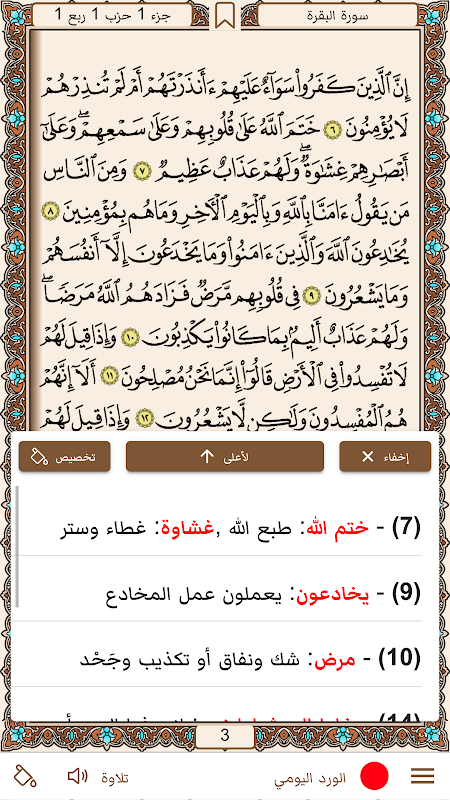 سورة البقرة
جزء 1 حزب 1 ربع 1
إِنَّ ٱلَّذِينَ كَفَرُوا۟ سَوَآءٌ عَلَيْهِمْ ءَأَنذَرْتَهُمْ أَمْ لَمْ تُنذِرْهُمْ
لَا يُؤْمِنُونَ ٦ خَتَمَ ٱللَّهُ عَلَىٰ قُلُوبِهِمْ وَعَلَىٰ سَمْعِهِمْ ۖ وَعَلَىٰٓ
أَبْصَـٰرِهِمْ غِشَـٰوَةٌ ۖ وَلَهُمْ عَذَابٌ عَظِيمٌ ٧ وَمِنَ ٱلنَّاسِ
مَن يَقُولُ ءَامَنَّا بِٱللَّهِ وَبِٱلْيَوْمِ ٱلْـَٔاخِرِ وَمَا هُم بِمُؤْمِنِينَ ٨
يُخَـٰدِعُونَ ٱللَّهَ وَٱلَّذِينَ ءَامَنُوا۟ وَمَا يَخْدَعُونَ إِلَّآ أَنفُسَهُمْ
وَمَا يَشْعُرُونَ ٩ فِى قُلُوبِهِم مَّرَضٌ فَزَادَهُمُ ٱللَّهُ مَرَضًا ۖ
وَلَهُمْ عَذَابٌ أَلِيمٌۢ بِمَا كَانُوا۟ يَكْذِبُونَ ١٠ وَإِذَا قِيلَ لَهُمْ
لَا تُفْسِدُوا۟ فِى ٱلْأَرْضِ قَالُوٓا۟ إِنَّمَا نَحْنُ مُصْلِحُونَ ١١ أَلَآ إِنَّهُمْ
هُمُ ٱلْمُفْسِدُونَ وَلَـٰكِن لَّا يَشْعُرُونَ ١٢ وَإِذَا قِيلَ لَهُمْ
إخفاء
لأعلى
تخصيص
(7) - ختم الله: طبع الله ,غشاوة: غطاء وستر
(9) - يخادعون: يعملون عمل المخادع
(10) - مرض: شك ونفاق أو تكذيب وجَحْد
3
الورد اليومي
تلاوة